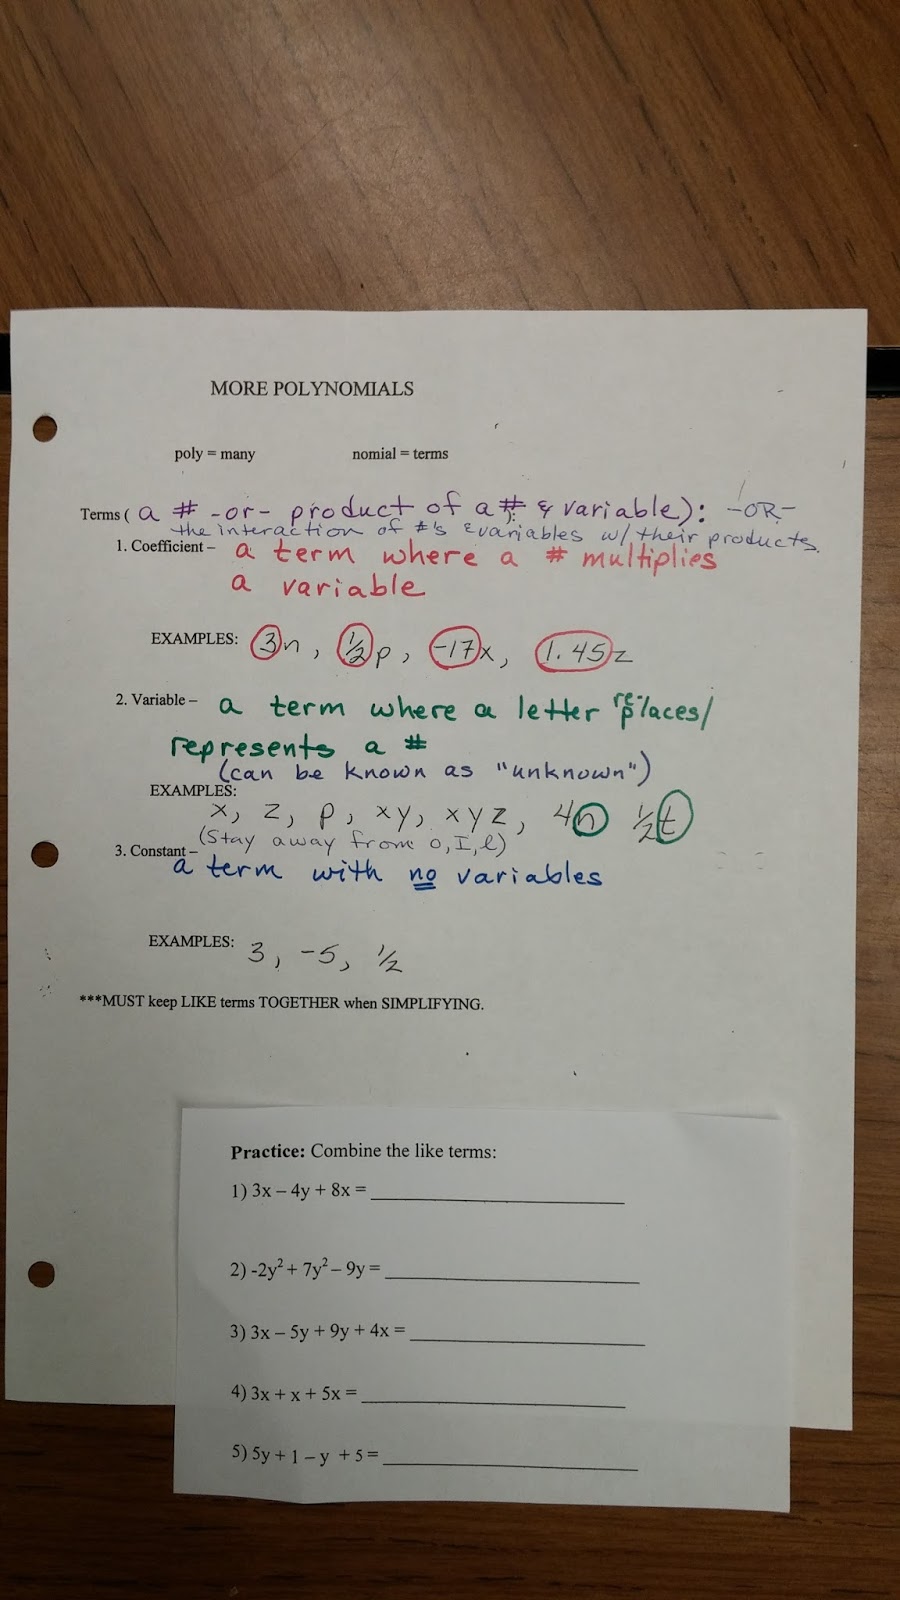 MORE POLYNOMIALS
poly = many nomial = terms
Terms ( a # -or- product of a # & variable): -OR-
the interaction of #'s & variables w/ their products.
1. Coefficient – a term where a # multiplies
a variable
EXAMPLES: 3n, ½p, -17x, 1.45z
2. Variable – a term where a letter "re-places/
represents a #
(can be known as "unknown")
EXAMPLES:
x, z, p, xy, xyz, 4n ½t
(Stay away from o, I, l)
3. Constant –
a term with no variables
EXAMPLES: 3, -5, ½
***MUST keep LIKE terms TOGETHER when SIMPLIFYING.
Practice: Combine the like terms:
1) 3x – 4y + 8x =
2) -2y² + 7y² – 9y =
3) 3x – 5y + 9y + 4x =
4) 3x + x + 5x =
5) 5y + 1 – y + 5 =